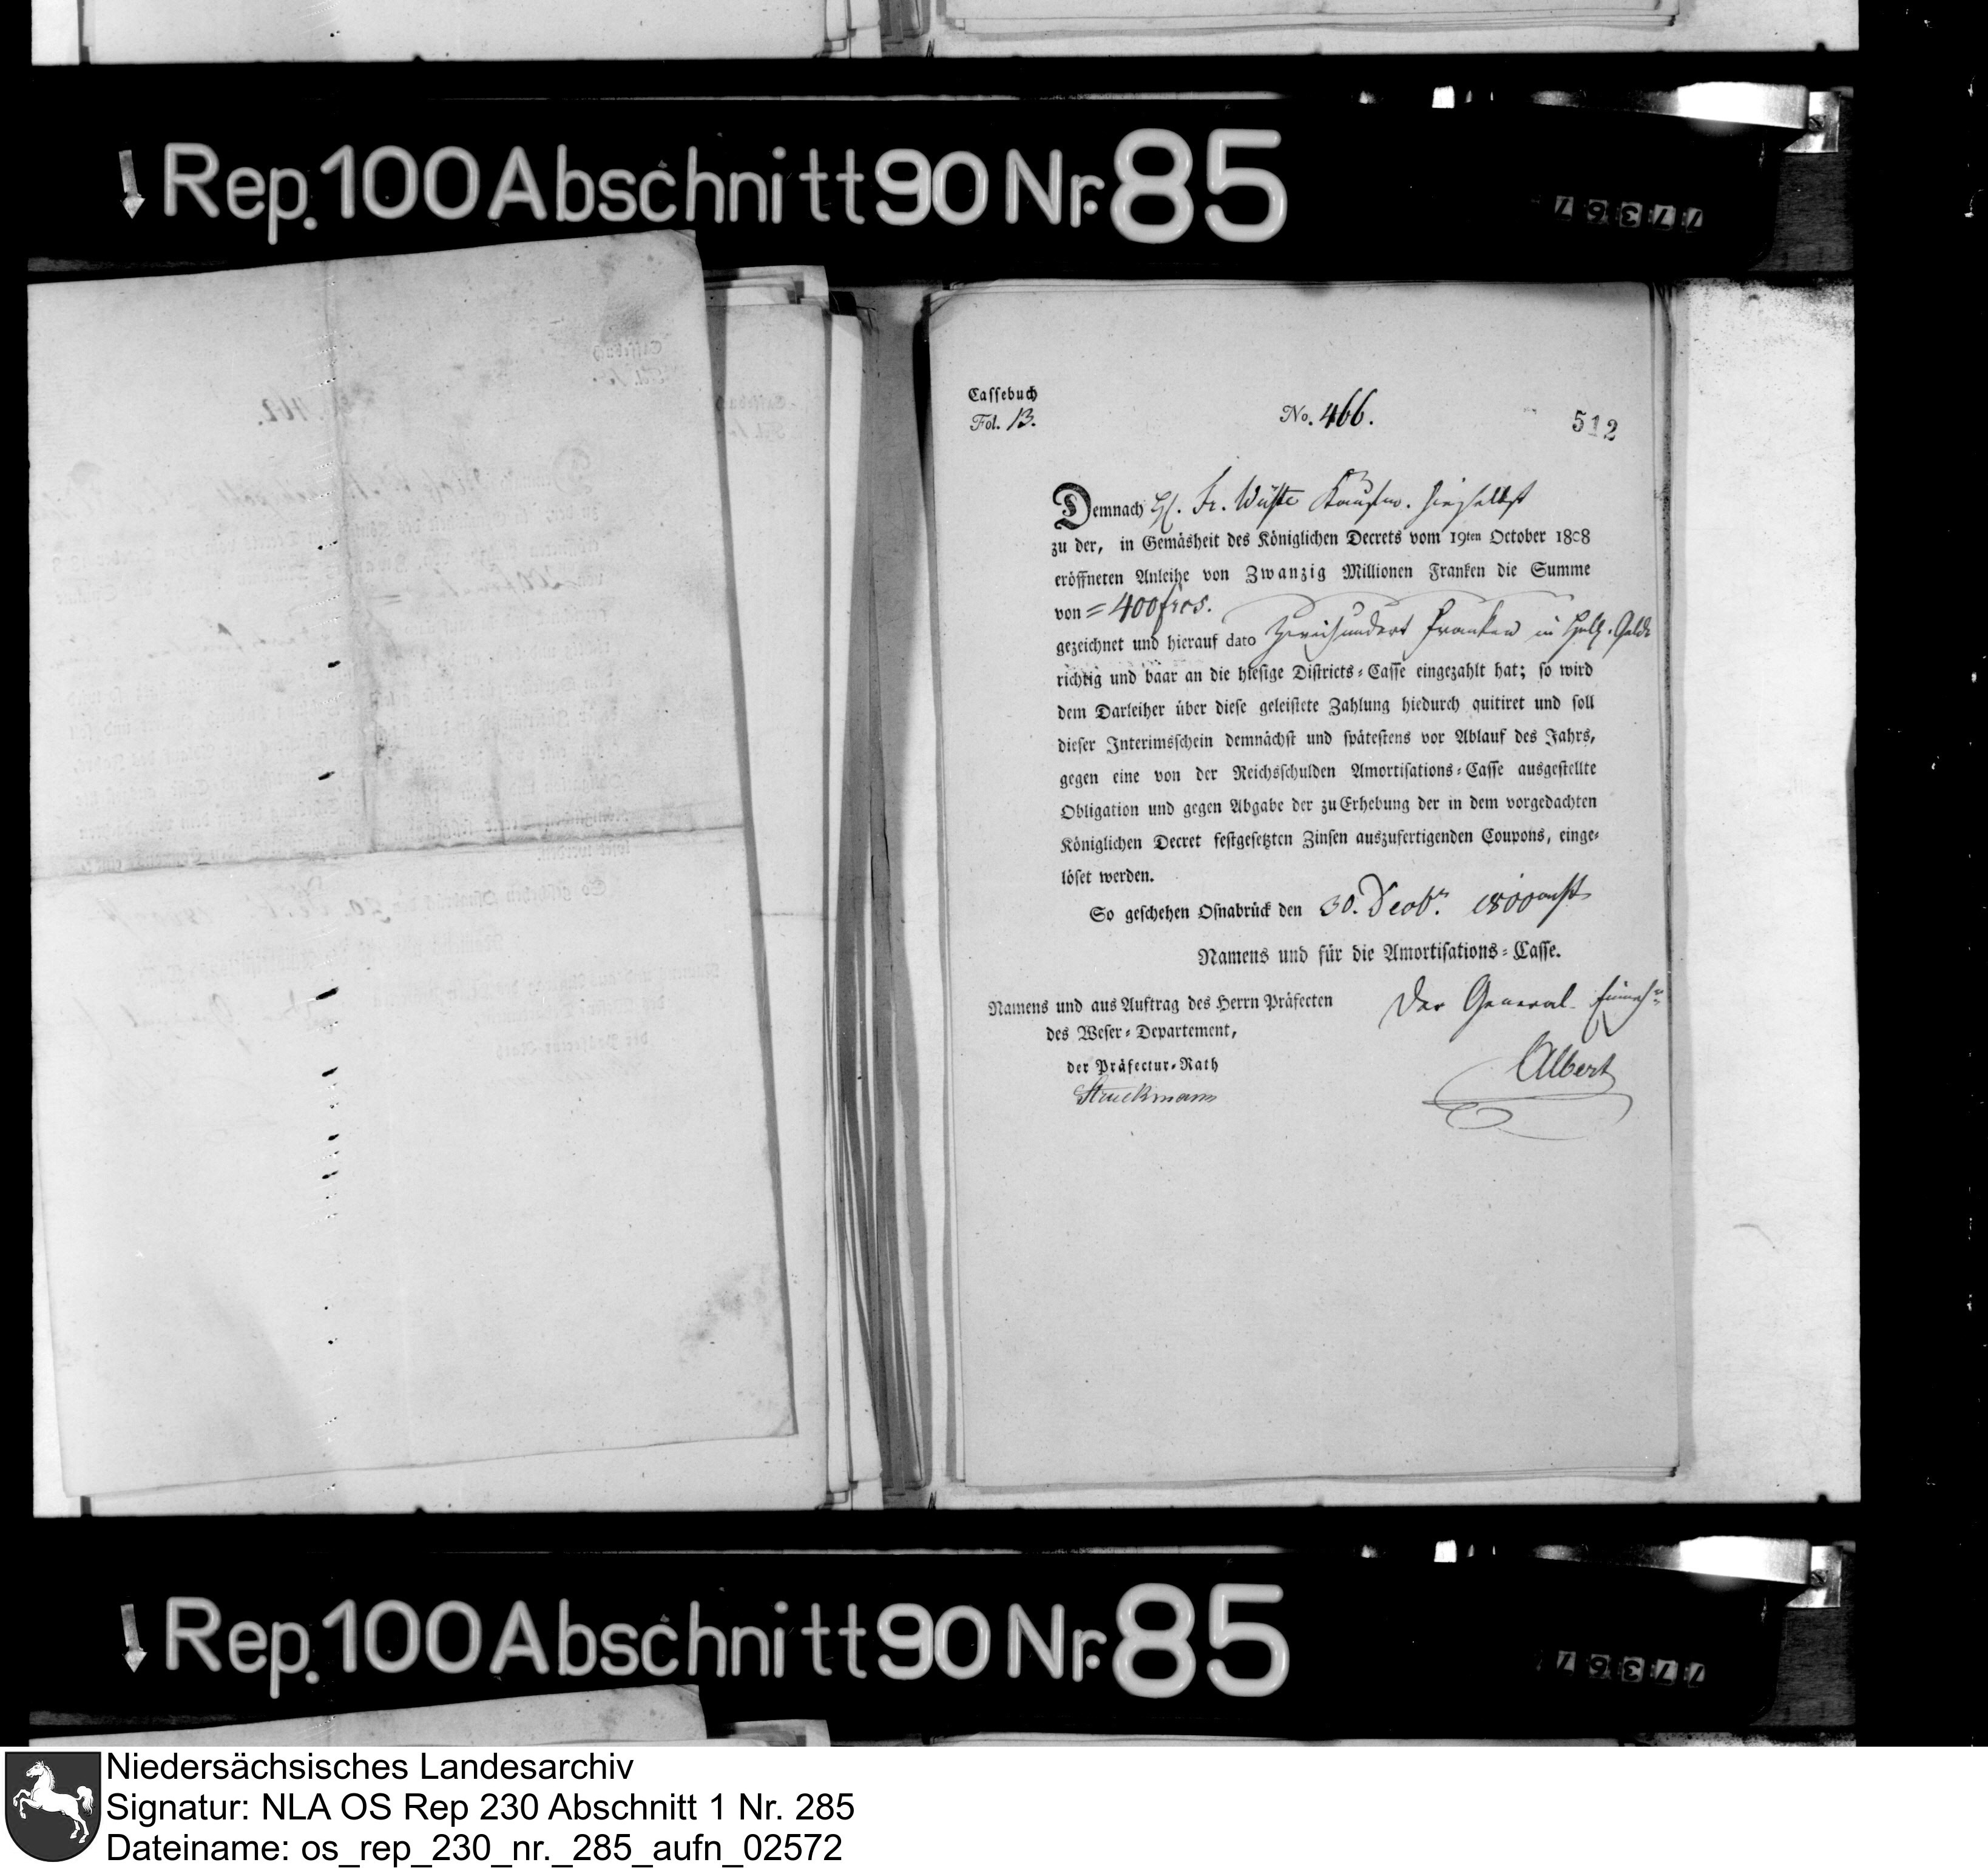 Rep. 100 Abschnitt 90 Nr. 85
77367
Cassebuch
Fol. 13.
No. 466.
512
Demnach H. Fr. Wüste Kaufm. hieselbst
zu der, in Gemäsheit des Königlichen Decrets vom 19ten October 1808
eröffneten Anleihe von Zwanzig Millionen Franken die Summe
von = 400 frcs.
gezeichnet und hierauf dato Zweihundert Franken in Gelde
richtig und baar an die hiesige Districts-Casse eingezahlt hat; so wird
dem Darleiher über diese geleistete Zahlung hiedurch quitiret und soll
dieser Interimsschein demnächst und spätestens vor Ablauf des Jahrs,
gegen eine von der Reichsschulden Amortisations-Casse ausgestellte
Obligation und gegen Abgabe der zu Erhebung der in dem vorgedachten
Königlichen Decret festgesetzten Zinsen auszufertigenden Coupons, einge-
löset werden.
So geschehen Osnabrück den 30. Decbr.
Namens und für die Amortisations-Casse.
Namens und aus Auftrag des Herrn Präfecten
des Weser-Departement,
der Präfectur-Rath
Struckmann
Der General-Einneh
Albert
Rep. 100 Abschnitt 90 Nr. 85
77367
Niedersächsisches Landesarchiv
Signatur: NLA OS Rep 230 Abschnitt 1 Nr. 285
Dateiname: os_rep_230_nr._285_aufn_02572